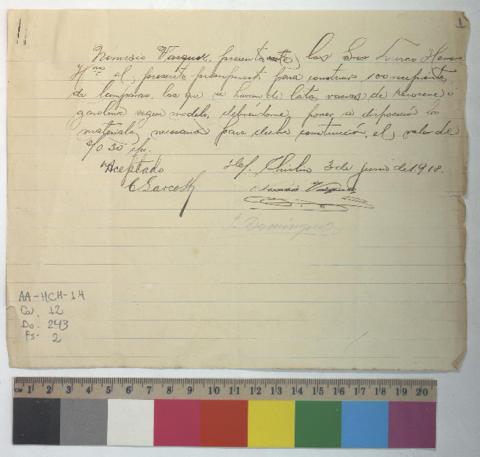 1
Nemesio Vasquez, presenta ante los Sres Hermanos
el presente presupuesto para construir 100 recipientes
de lamparas, los que se haran de latas vacias de kerosene o
gasolina segun modelo, debiendome poner a disposicion los
materiales necesarios para dicha construccion, el valor de
Aceptado
Chiclin 3 de junio de 1918.
Nemesio Vasquez
S. Dominguez
AA-HCH-1.4
Ca. 12
Do. 243
Fs- 2
cm 1 2 3 4 5 6 7 8 9 10 11 12 13 14 15 16 17 18 19 20